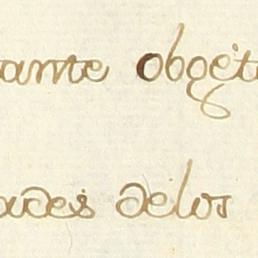 tante obget
ades delos